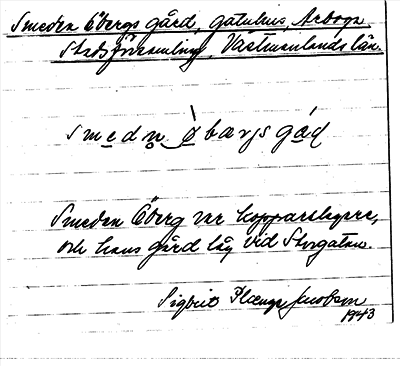 Smeden Öbergs gård, gatuhus, Arboga
Stadsförsamling, Västmanlands län.
smedn öbærjs gád
Smeden Öberg var kopparslagare,
och hans gård låg vid Storgatan.
Sigbrit Plænge Jacobson
1943